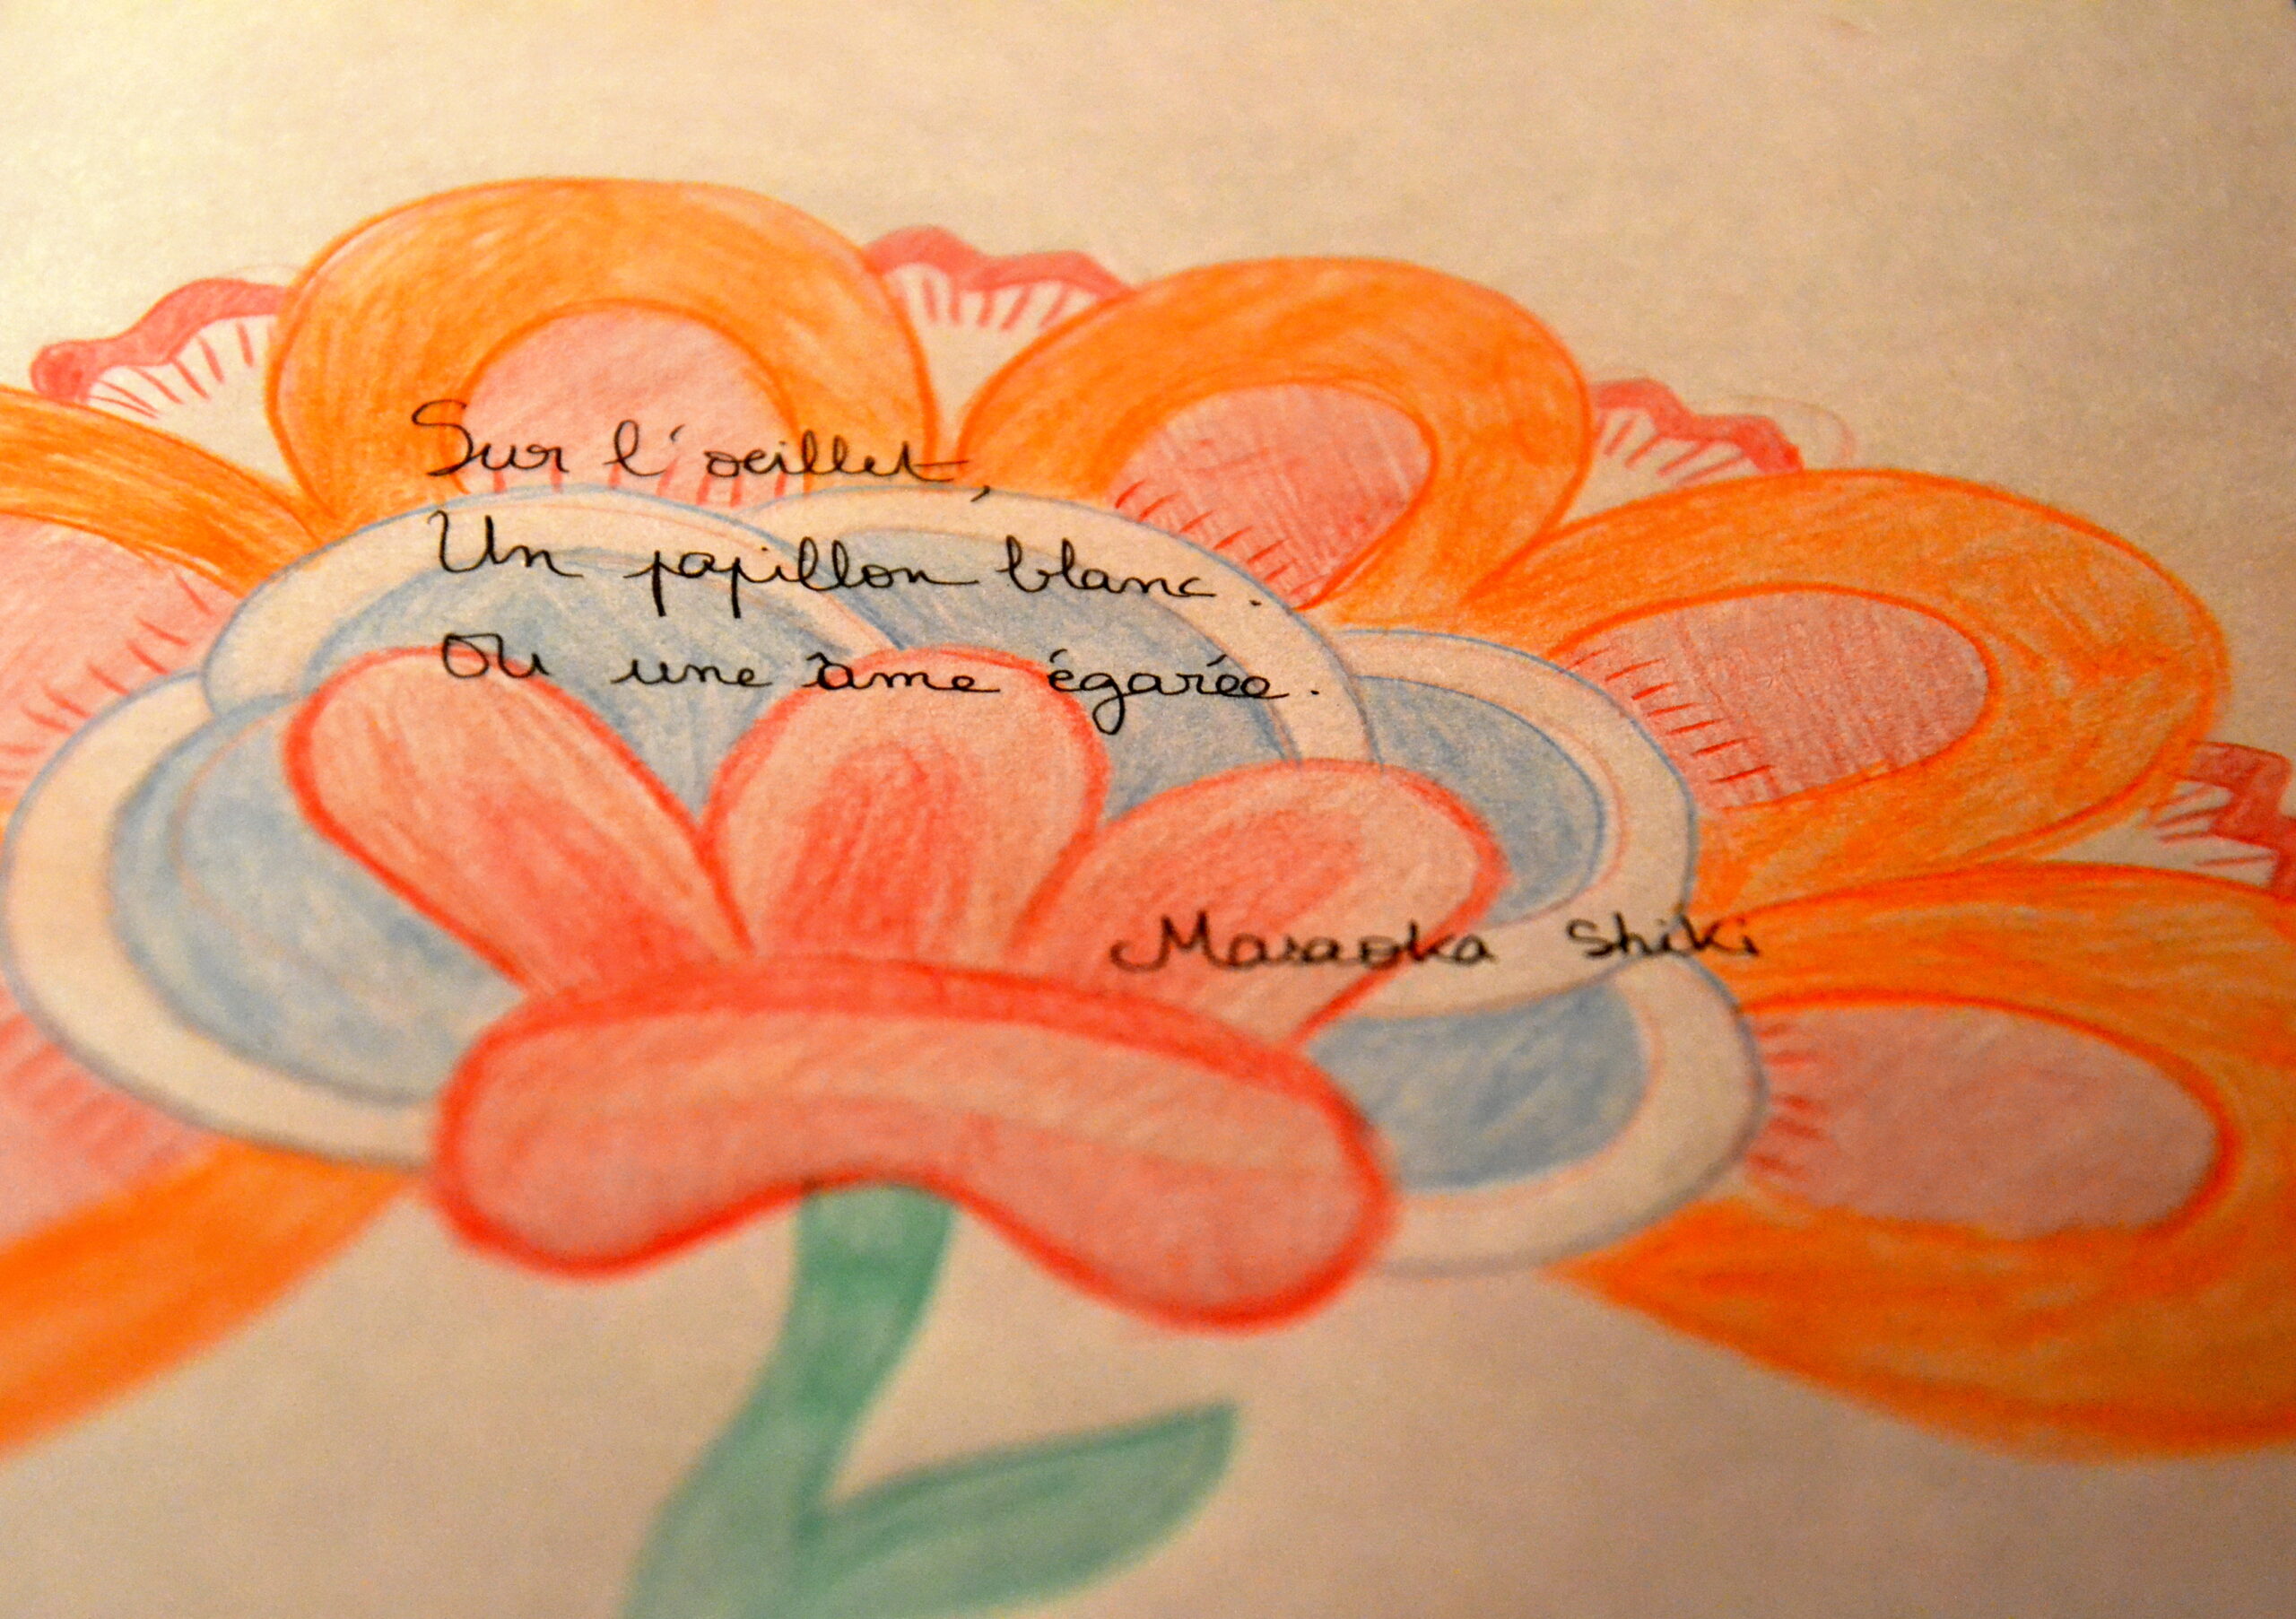 Sur l'oeillet,
Un papillon blanc.
Ou une âme égarée.
Masaoka Shiki